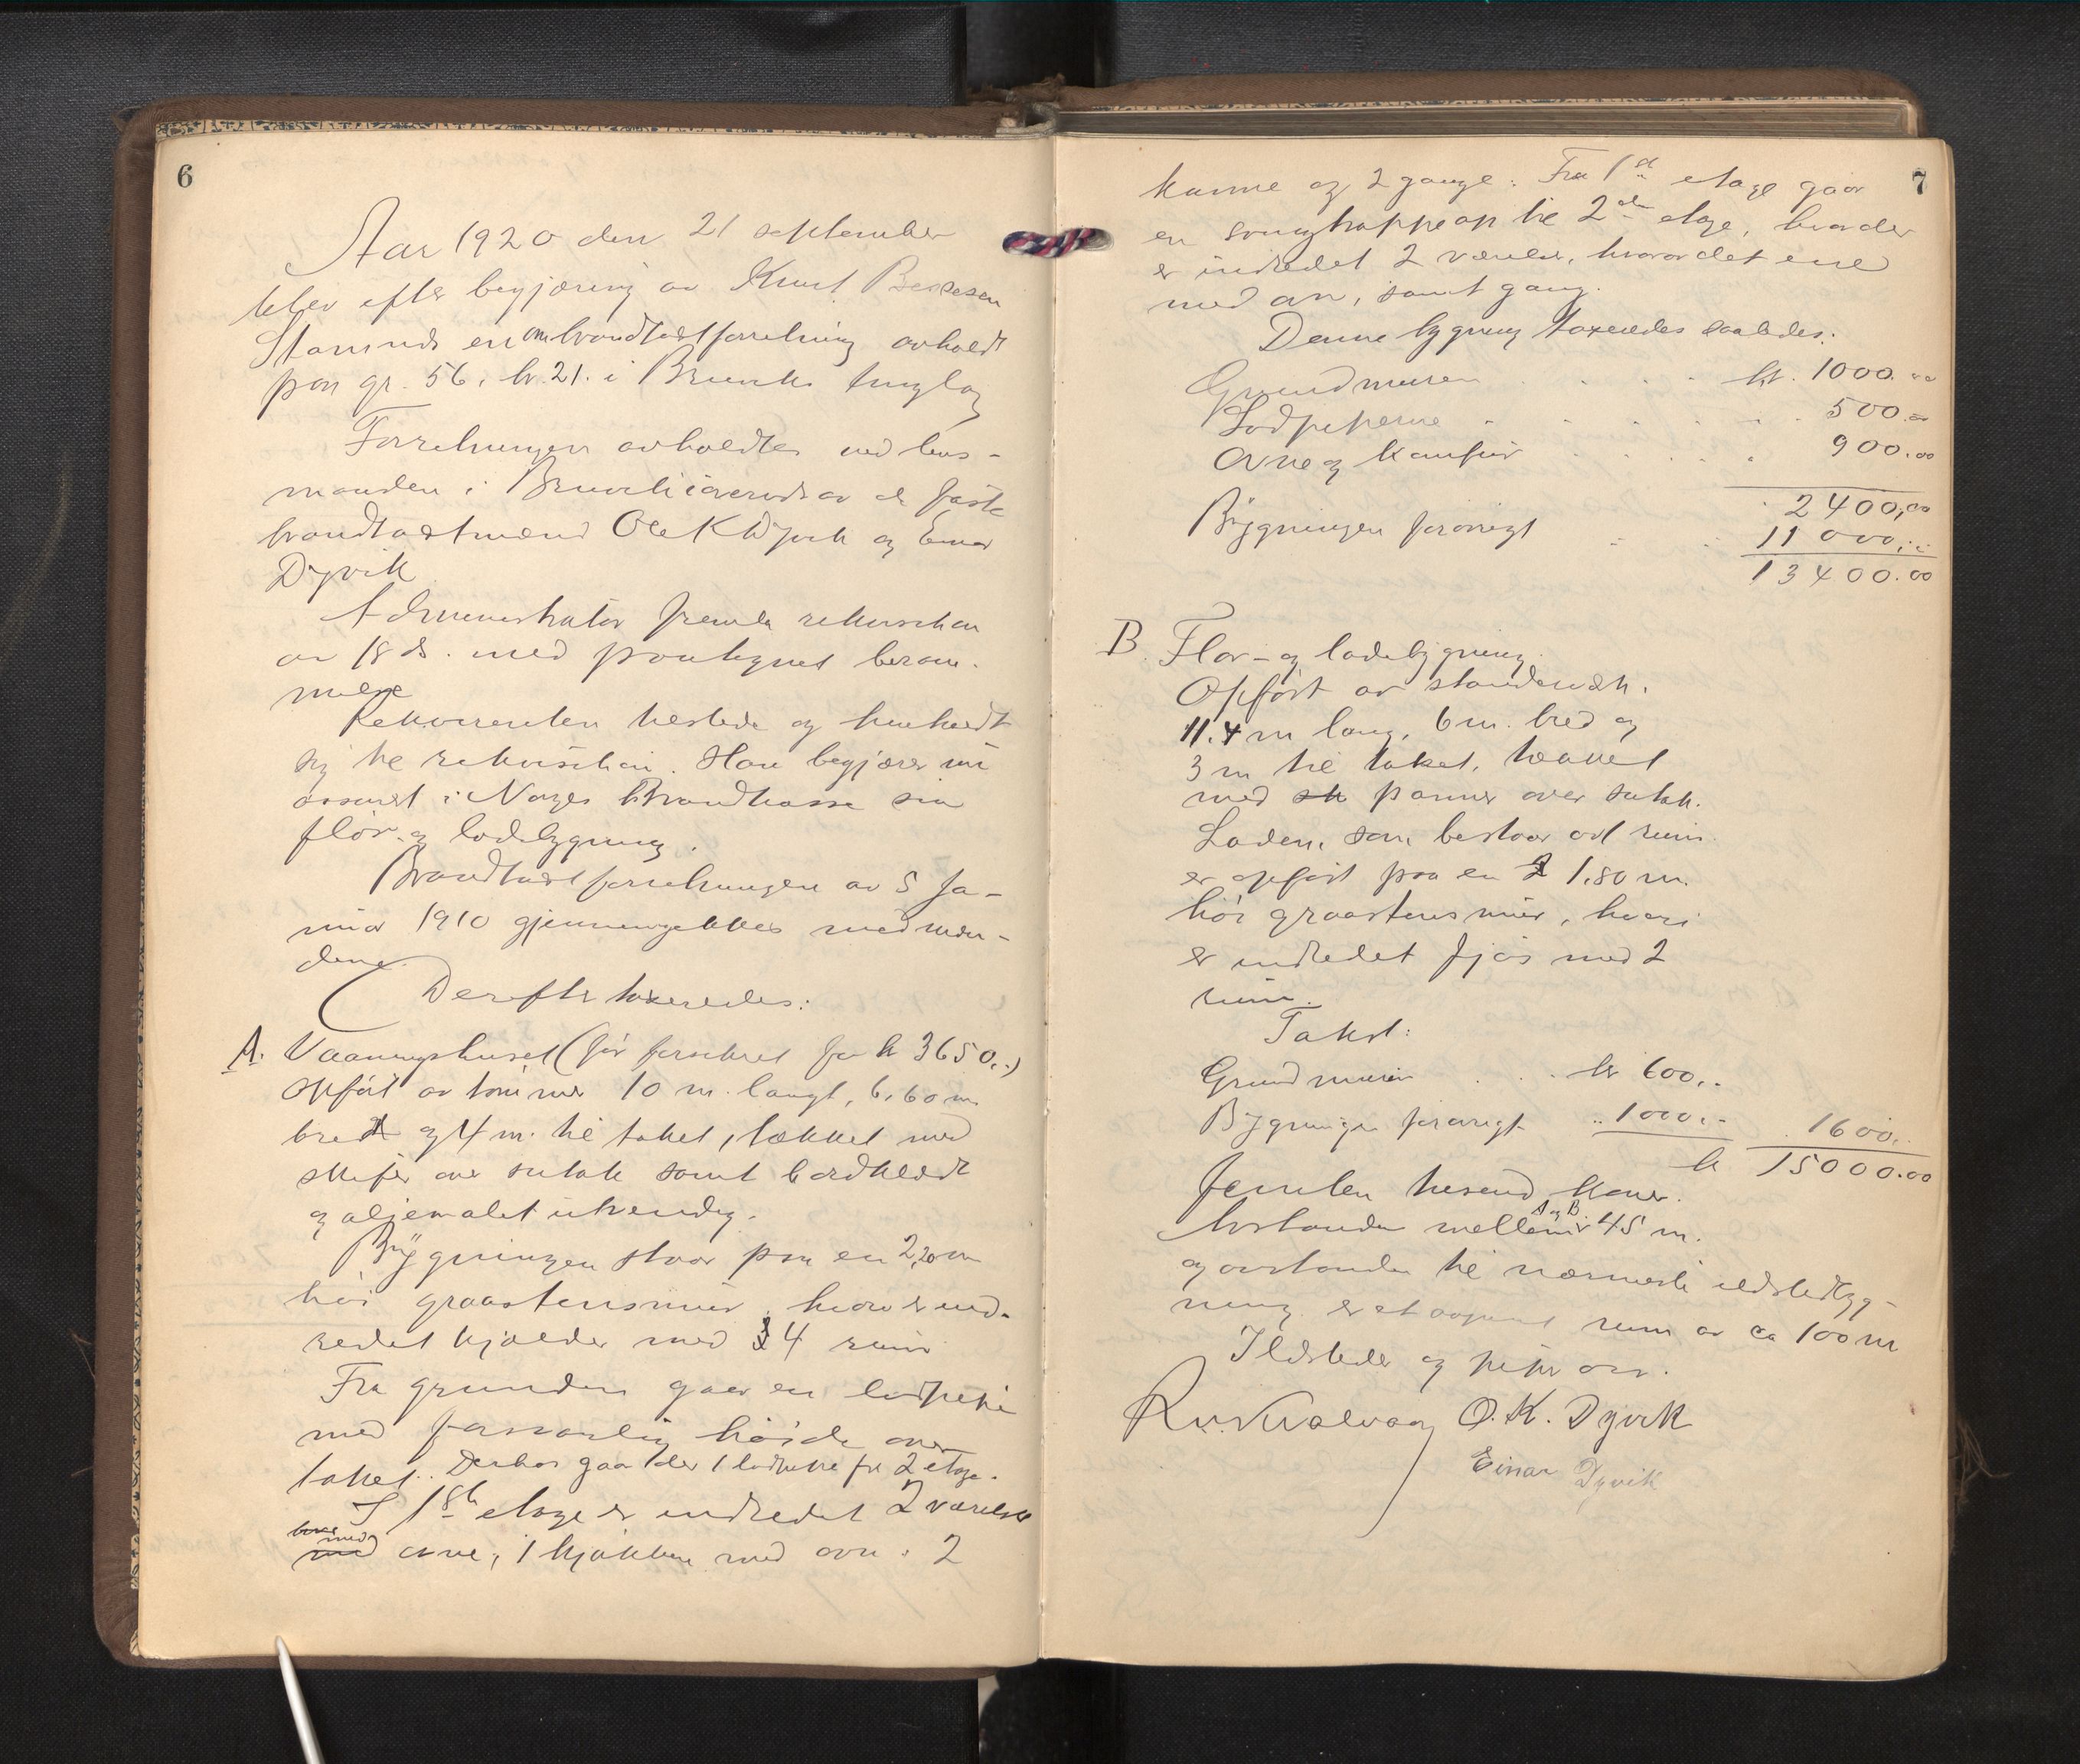 6
Aar 1920 den 21 september
blev efter begjæring av Knut Bessesen
Stamnes en ombrandtakstforretning avholdt
paa gr. 56, br. 21. i Bruvik tinglag
Forretningen avholdtes ved lens-
manden i Bruvik i overvær av de faste
brandtakstmænd Ole K Dyvik og Einar
Dyvik
Administrator fremla rekvisition
av 18 ds. med paategnet beram-
melse
Rekvirenten tilstede og henholdt
sig til rekvisition. Han begjærer nu
assurert i Norges Brandkasse sin
flor- og ladebygning.
Brandtakstforretningen av 5 ja-
nuar 1910 gjennemgikkes med mæn-
dene.
Derefter taxeredes:
A. Vaaningshuset (før forsikret for kr 3650,-)
opført av tømmer 10 m. langt, 6,60 m
bredt og 4 m. til taket, tækket med
skifer over sutak samt bordklædt
og oljemalet utvendig.
Bygningen staar paa en 2,20 m
høi graastensmur, hvori er ind-
redet kjælder med 4 rum
Fra grunden gaar en lodpipe
med forsvarlig høide over
taket. Derhos gaar der 1 lodpipe fra 2 etage.
I 1ste etage er indredet 2 værelser
begge med ovne, 1 kjøkken med ovn, 2
7
kamre og 2 gange. Fra 1ste etage gaar
en svingtrappe op til 2den etage, hvor der
er indredet 2 værelser, hvorav det ene
med ovn, samt gang.
Denne bygning taxeredes saaledes:
Grundmuren kr. 1000.00
Lodpiperne 500.00
Ovne og komfur 900.00
2400,00
Bygningen forøvrigt 11 000,00
13400.00
B. Flor- og ladebygning.
Opført av standerverk.
11.4 m lang, 6 m. bred og
3 m til taket, tækket
med panner over sutak.
Laden, som bestaar av 1 rum
er opført paa en 1.80 m.
høi graastensmur, hvori
er indredet fjøs med 2
rum.
Takst:
Grundmuren kr 600,-
Bygningen forøvrigt " 1000,- 1600,-
kr 15000.00
Femten tusend kroner.
Avstanden mellem A og B er 45 m.
og avstanden til nærmeste ildstedbyg-
ning er et aapent rum av ca 100 m
Ildsteder og piper
O. K. Dyvik
Einar Dyvik